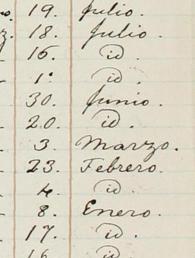 19. Julio.
18. Julio.
16. id.
1º id
30. Junio.
20. id.
3. Marzo.
23. Febrero.
4. id.
8. Enero.
17. id.
16. id